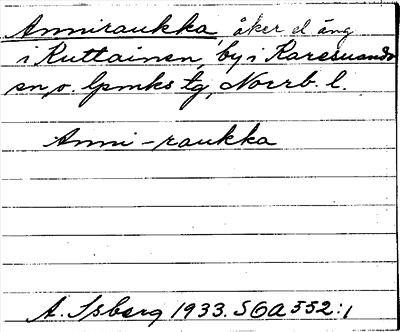 Anniraukka, åker el äng
i Kuttainen, by i Karesuando
sn o. lpmks tg, Norrb. l.
Anni-raukka
A. Isberg 1933. SOA 552:1